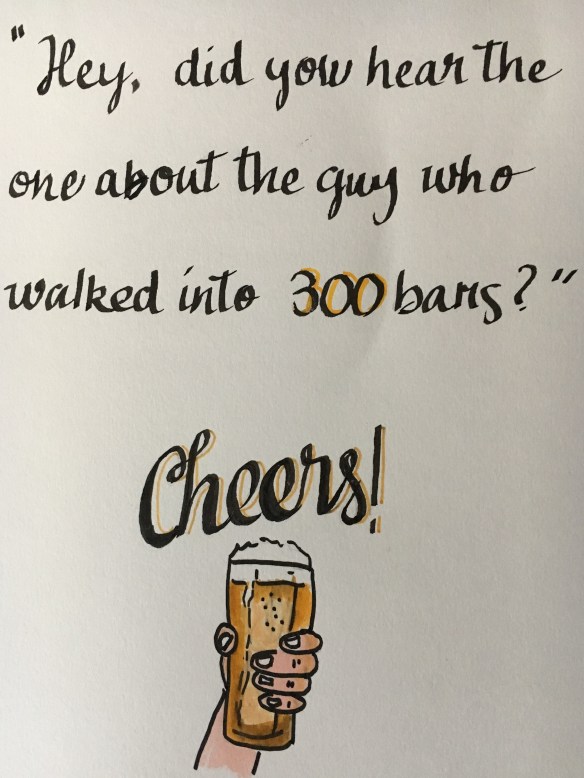 "Hey, did you hear the
one about the guy who
walked into 300 bars?"
Cheers!